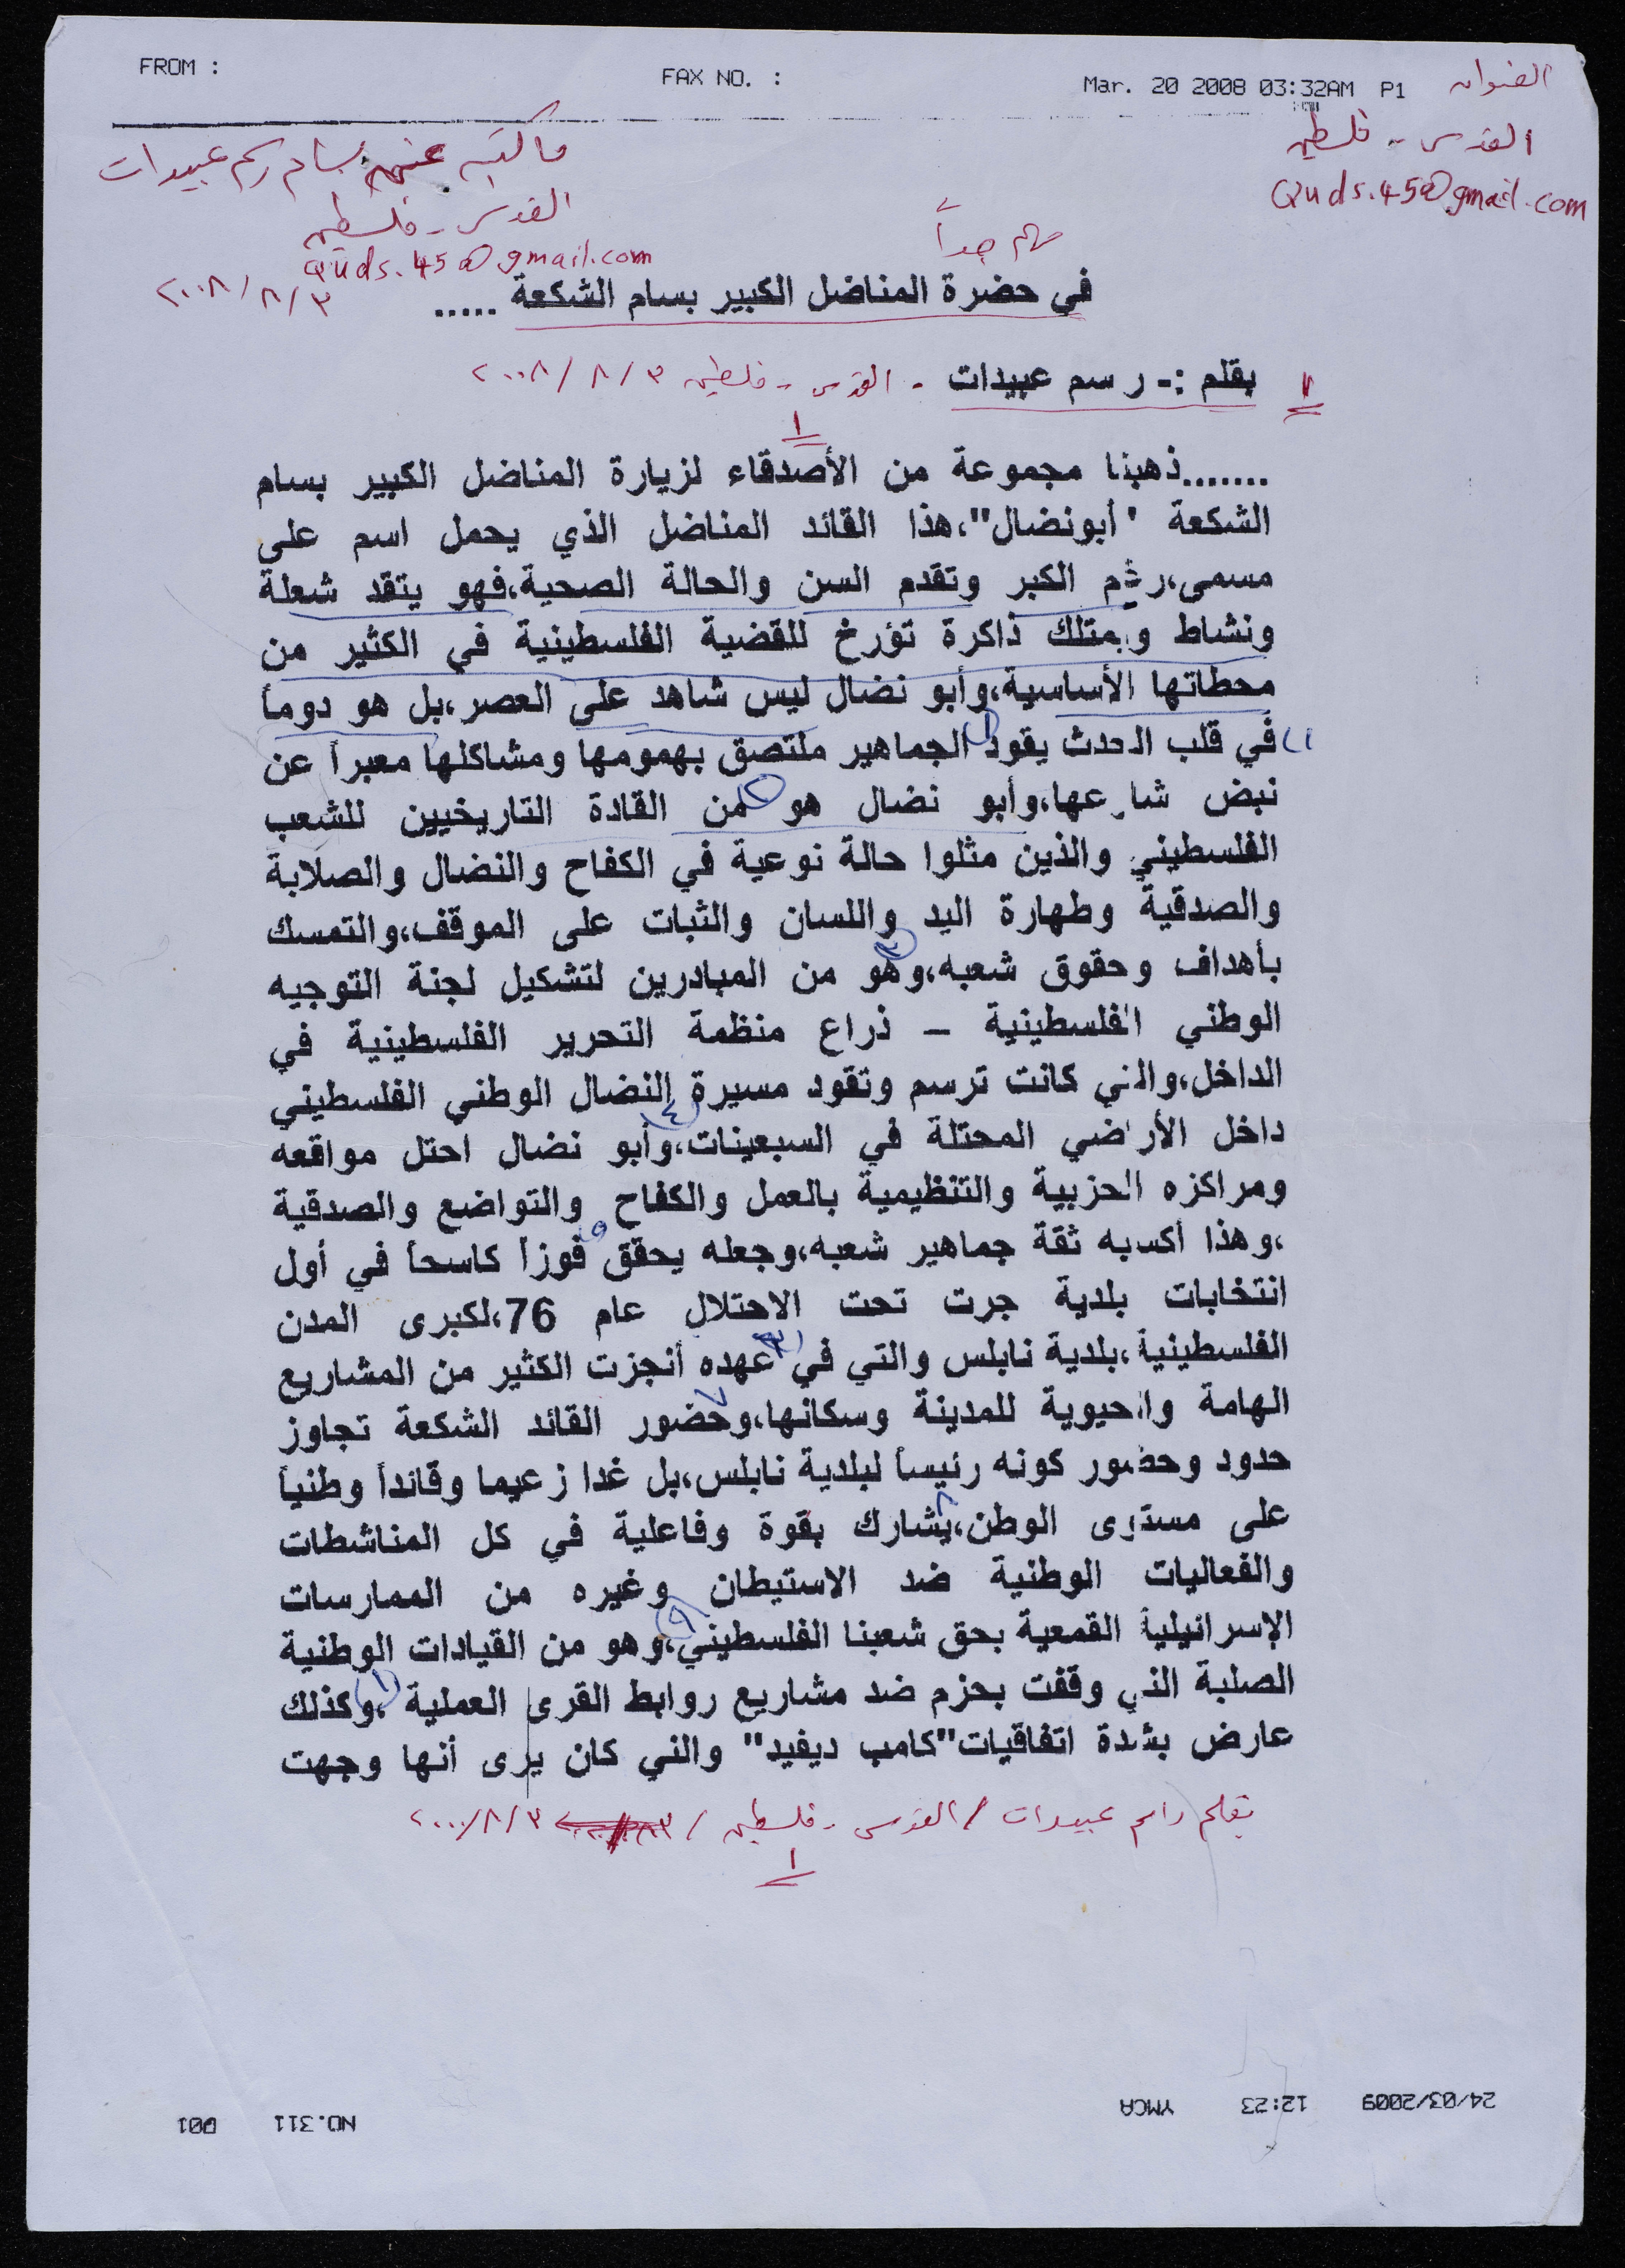 FROM :
FAX NO. :
Mar. 20 2008 03:32AM P1
العنوان
القدس - فلسطين
Quds.45@gmail.com
ما كتبه عن بسام رسم عبيدات
القدس - فلسطين
Quds.45@gmail.com
٢٠٠٨/٨/٣
مهم جداً
في حضرة المناضل الكبير بسام الشكعة .....
بقلم :- رسم عبيدات - القدس - فلسطين ٢٠٠٨/٨/٣
١
.......ذهبنا مجموعة من الأصدقاء لزيارة المناضل الكبير بسام
الشكعة "أبونضال"،هذا القائد المناضل الذي يحمل اسم على
مسمى،رغم الكبر وتقدم السن والحالة الصحية،فهو يتقد شعلة
ونشاط ويمتلك ذاكرة تؤرخ للقضية الفلسطينية في الكثير من
محطاتها الأساسية،وأبو نضال ليس شاهد على العصر،بل هو دوماً
في قلب الحدث يقود الجماهير ملتصق بهمومها ومشاكلها معبراً عن
نبض شارعها،وأبو نضال هو من القادة التاريخيين للشعب
الفلسطيني والذين مثلوا حالة نوعية في الكفاح والنضال والصلابة
والصدقية وطهارة اليد واللسان والثبات على الموقف،والتمسك
بأهداف وحقوق شعبه،وهو من المبادرين لتشكيل لجنة التوجيه
الوطني الفلسطينية – ذراع منظمة التحرير الفلسطينية في
الداخل،والتي كانت ترسم وتقود مسيرة النضال الوطني الفلسطيني
داخل الأراضي المحتلة في السبعينات،وأبو نضال احتل مواقعه
ومراكزه الحزبية والتنظيمية بالعمل والكفاح والتواضع والصدقية
،وهذا أكسبه ثقة جماهير شعبه،وجعله يحقق فوزاً كاسحاً في أول
انتخابات بلدية جرت تحت الاحتلال عام 76،لكبرى المدن
الفلسطينية،بلدية نابلس والتي في عهده أنجزت الكثير من المشاريع
الهامة والحيوية للمدينة وسكانها،وحضور القائد الشكعة تجاوز
حدود وحضور كونه رئيساً لبلدية نابلس،بل غدا زعيما وقائداً وطنياً
على مستوى الوطن،يشارك بقوة وفاعلية في كل المناشطات
والفعاليات الوطنية ضد الاستيطان وغيره من الممارسات
الإسرائيلية القمعية بحق شعبنا الفلسطيني،وهو من القيادات الوطنية
الصلبة الذي وقفت بحزم ضد مشاريع روابط القرى العملية ،وكذلك
عارض بشدة اتفاقيات"كامب ديفيد" والتي كان يرى أنها وجهت
بقلم راسم عبيدات / القدس - فلسطين / ٢٠٠٠/٨/٣
١
24/03/2009 12:23 YMCA
NO.311 001